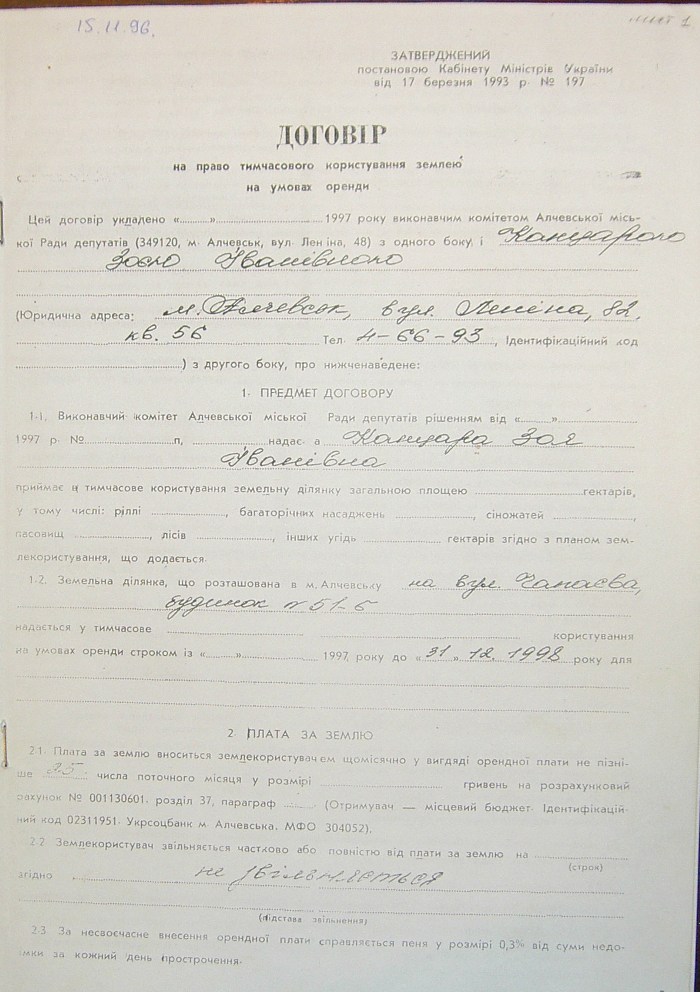 15.11.96.
лист 1
ЗАТВЕРДЖЕНИЙ
постановою Кабінету Міністрів України
від 17 березня 1993 р. № 197
ДОГОВІР
на право тимчасового користування землею
на умовах оренди
Цей договір укладено «..........».............................. 1997 року виконавчим комітетом Алчевської місь-
кої Ради депутатів (349120, м. Алчевськ, вул. Леніна, 48) з одного боку, і Канцарою
Зоєю Іванівною
(Юридична адреса: м. Алчевськ, вул. Леніна, 82,
кв. 56 Тел. 4-66-93, Ідентифікаційний код
..............................) з другого боку, про нижченаведене:
1. ПРЕДМЕТ ДОГОВОРУ
1.1. Виконавчий комітет Алчевської міської Ради депутатів рішенням від «..........»....................
1997 р. №....................п, ....................надає а Канцара Зоя
Іванівна
приймає в тимчасове користування земельну ділянку загальною площею ....................гектарів,
у тому числі: ріллі ...................., багаторічних насаджень ...................., сіножатей ....................,
пасовищ ...................., лісів ...................., інших угідь .................... гектарів згідно з планом зем-
лекористування, що додається.
1.2. Земельна ділянка, що розташована в м. Алчевську на вул. Чапаєва,
будинок № 51-б
надається у тимчасове .............................. .............................. користування
на умовах оренди строком із «..........».................... 1997 року до «31» 12. 1998 року для
2. ПЛАТА ЗА ЗЕМЛЮ
2.1. Плата за землю вноситься землекористувачем щомісячно у вигляді орендної плати не пізні-
ше 25 числа поточного місяця у розмірі .............................. гривень на розрахунковий
рахунок № 001130601. розділ 37, параграф .......... (Отримувач — місцевий бюджет. Ідентифікацій-
ний код 02311951. Укрсоцбанк м. Алчевська. МФО 304052).
2.2 Землекористувач звільняється частково або повністю від плати за землю на ....................
(строк)
згідно не звільняється
(підстава звільнення)
2.3 За несвоєчасне внесення орендної плати справляється пеня у розмірі 0,3% від суми недо-
імки за кожний день прострочення.